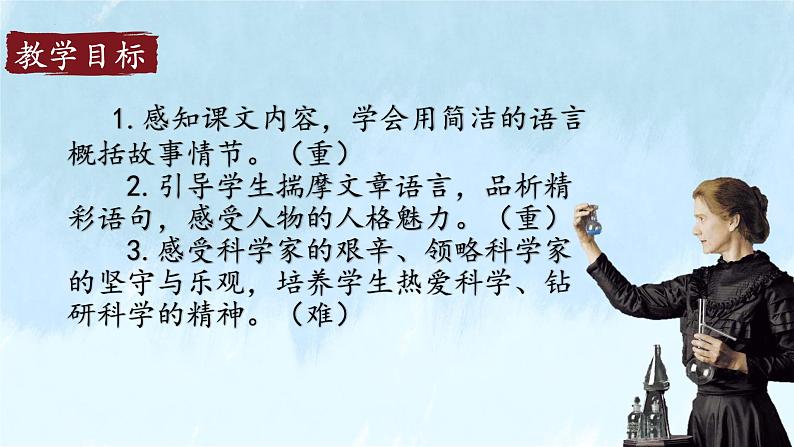 教学目标
1.感知课文内容，学会用简洁的语言
概括故事情节。（重）
2.引导学生揣摩文章语言，品析精
彩语句，感受人物的人格魅力。（重）
3.感受科学家的艰辛、领略科学家
的坚守与乐观，培养学生热爱科学、钻
研科学的精神。（难）